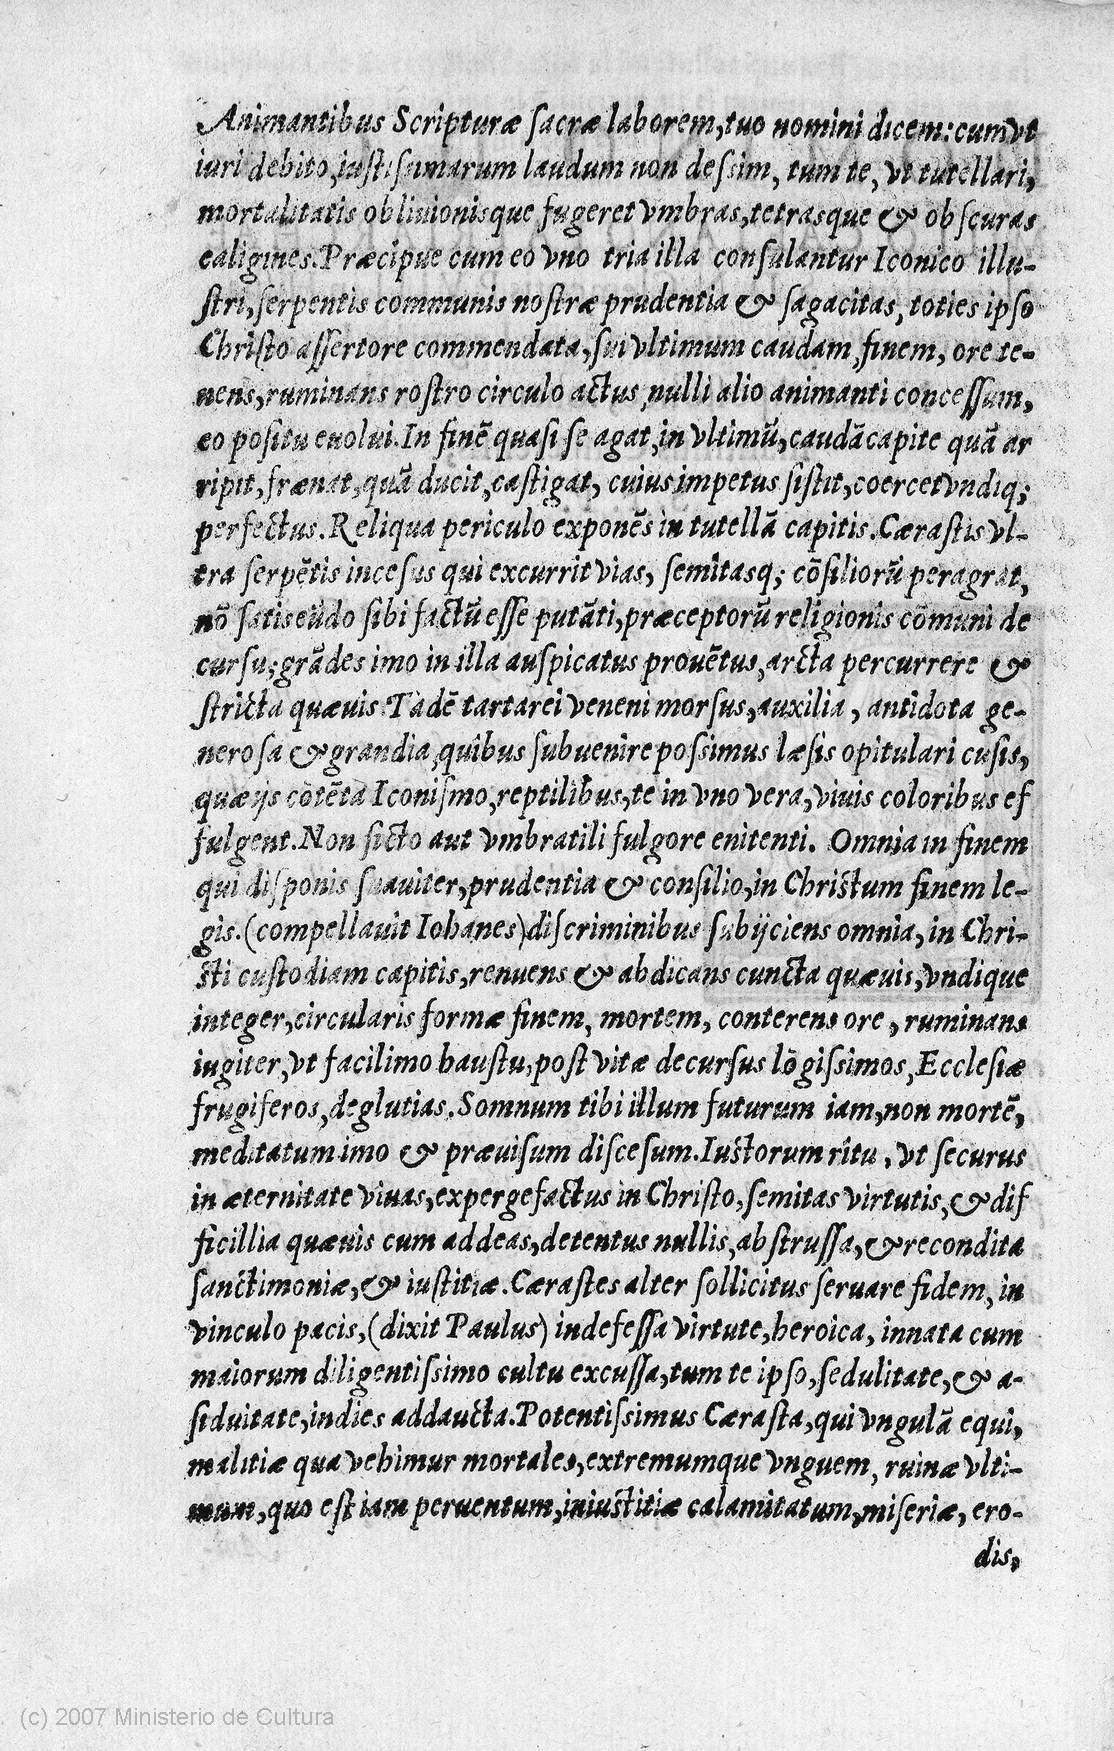 Animantibus Scripturæ ſacræ laborem,tuo nomini dicem:cum vt
iuri debito,iuſtiſsimarum laudum non deſsim, tum te, vt tutellari,
mortalitatis obliuionisque fugeret vmbras,tetrasque & obſcuras
caligines.Præcipue cum eo vno tria illa conſulantur Iconico illu-
ſtri,ſerpentis communis noſtræ prudentia & ſagacitas, toties ipſo
Chriſto aſſertore commendata,ſui vltimum caudam,finem, ore te-
nens,ruminans roſtro circulo actus,nulli alio animanti conceſſum,
eo poſitu euolui.In finē quaſi ſe agat,in vltimū,caudā capite quā ar
ripit,frænat,quā ducit,caſtigat, cuius impetus ſiſtit,coercet vndiq;
perfectus.Reliqua periculo exponēs in tutellā capitis.Cæraſtis vl-
tra ſerpētis inceſus qui excurrit vias, ſemitasq; cōſiliorū peragrat,
nō ſatiseūdo ſibi factū eſſe putāti,præceptorū religionis cōmuni de
curſu;grādes imo in illa auſpicatus prouētus,arcta percurrere &
ſtricta quæuis.Tādē tartarei veneni morſus,auxilia, antidota ge-
neroſa & grandia,quibus ſubuenire poſsimus læſis opitulari cuſis,
quæ ijs cōtēta Iconiſmo,reptilibus,te in vno vera,viuis coloribus ef
fulgent.Non ficto aut vmbratili fulgore enitenti. Omnia in finem
qui diſponis ſuauiter,prudentia & conſilio,in Chriſtum finem le-
gis.(compellauit Iohanes)diſcriminibus ſubijciens omnia,in Chri-
ſti cuſtodiam capitis,renuens & abdicans cuncta quæuis,vndique
integer,circularis formæ finem, mortem, conterens ore, ruminans
iugiter,vt facilimo hauſtu,poſt vitæ decurſus lōgiſsimos,Eccleſiæ
frugiferos,deglutias.Somnum tibi illum futurum iam,non mortē,
meditatum imo & præuiſum diſceſum.Iuſtorum ritu, vt ſecurus
in æternitate viuas,expergefactus in Chriſto,ſemitas virtutis,& dif
ficillia quæuis cum addeas,detentus nullis,abſtruſſa,& recondita
ſanctimoniæ,& iuſtitiæ.Cæraſtes alter ſollicitus ſeruare fidem, in
vinculo pacis,(dixit Paulus) indefeſſa virtute,heroica, innata cum
maiorum diligentiſsimo cultu excuſſa,tum te ipſo,ſedulitate,& a-
ſiduitate,indies addaucta.Potentiſsimus Cæraſta,qui vngulā equi,
malitiæ qua vehimur mortales,extremumque vnguem, ruinæ vlti-
mum,quo eſt iam peruentum,iniuſtitiæ calamitatum,miſeriæ, ero-
dis,
(c) 2007 Ministerio de Cultura